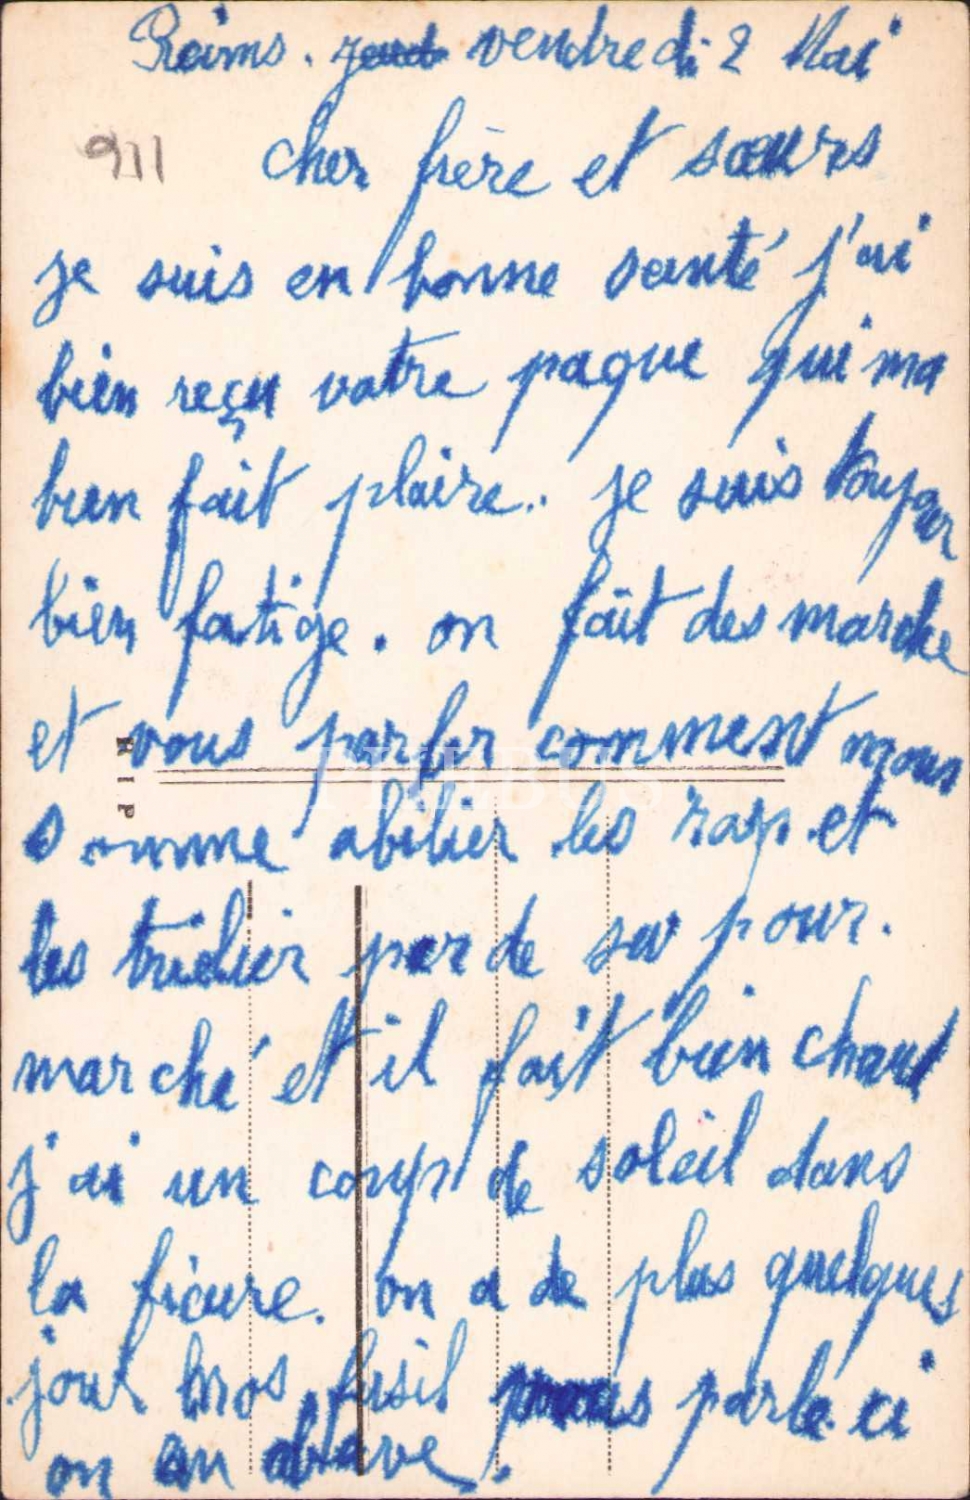 Reims. jeud vendredi 2 Mai
911
cher frère et sœurs
je suis en bonne santé j'ai
bien reçu votre paque qui ma
bien fait plaire. je suis toujour
bien fatige. on fait des marche
et vous parler comment nous
somme abilier les rap et
les trielier par de su pour.
marché et il fait bien chaud
j'ai un coup de soleil dans
la fieure. on a de plus quelques
jour nos fusil nous parlé ci
on an
HIP
PHEBUS